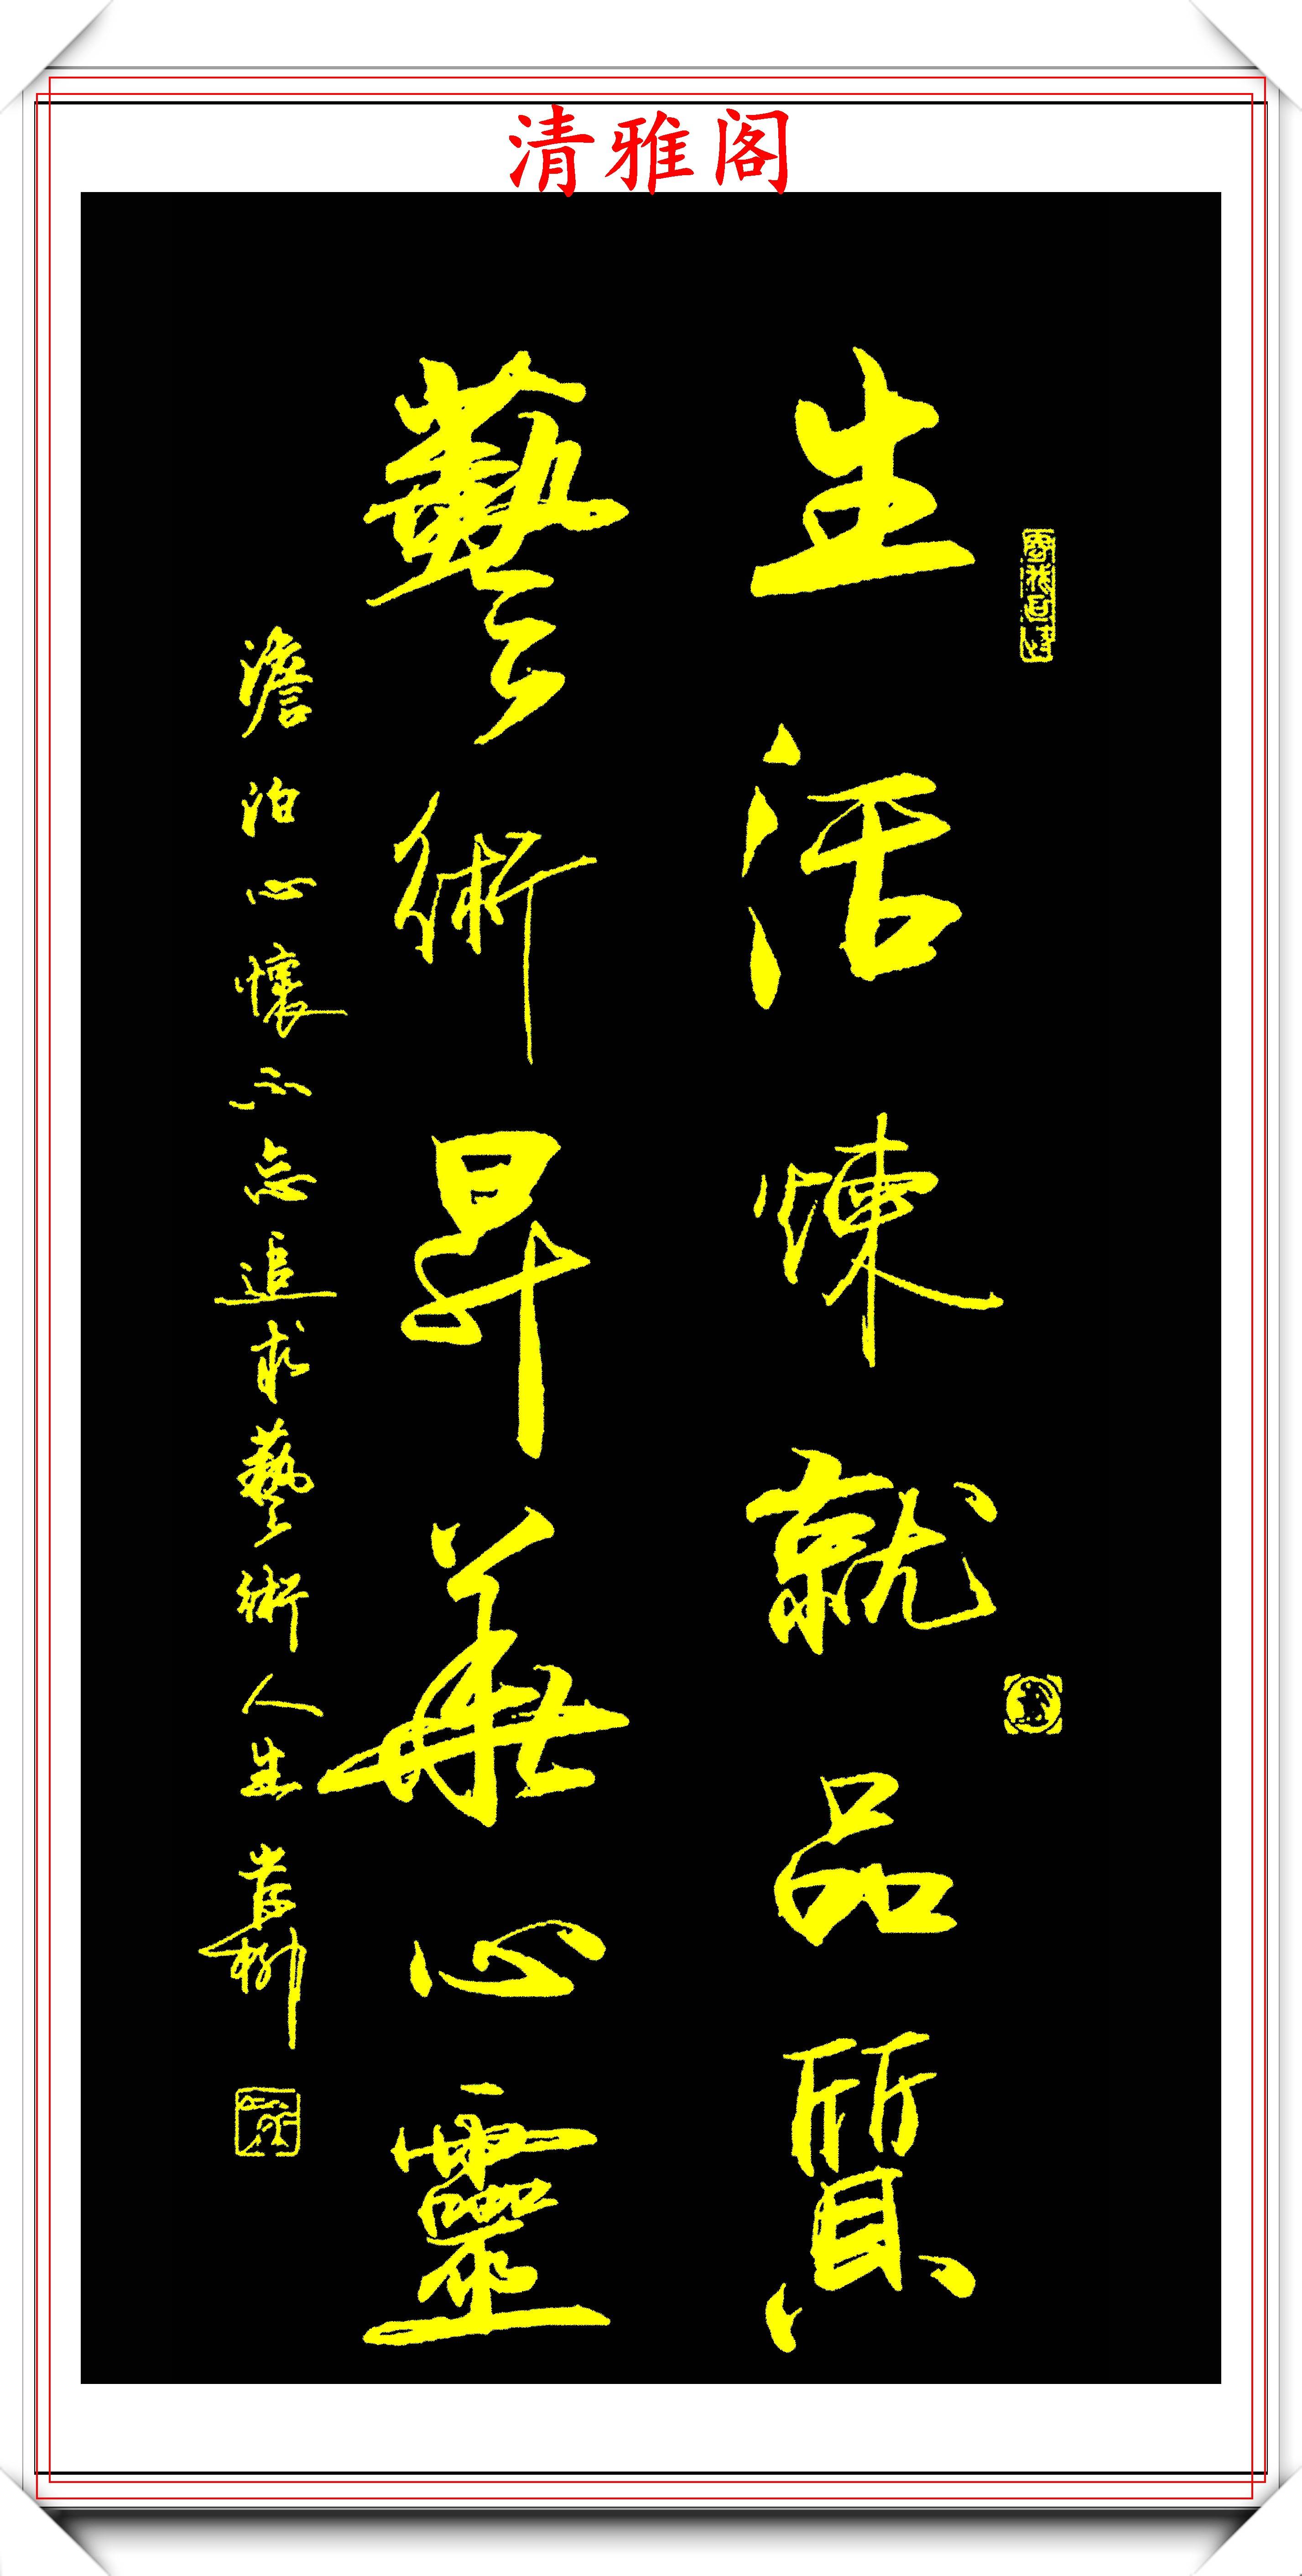 清雅阁
生活煉就品質
藝術昇華心靈
澹泊心懷不忘追求藝術人生